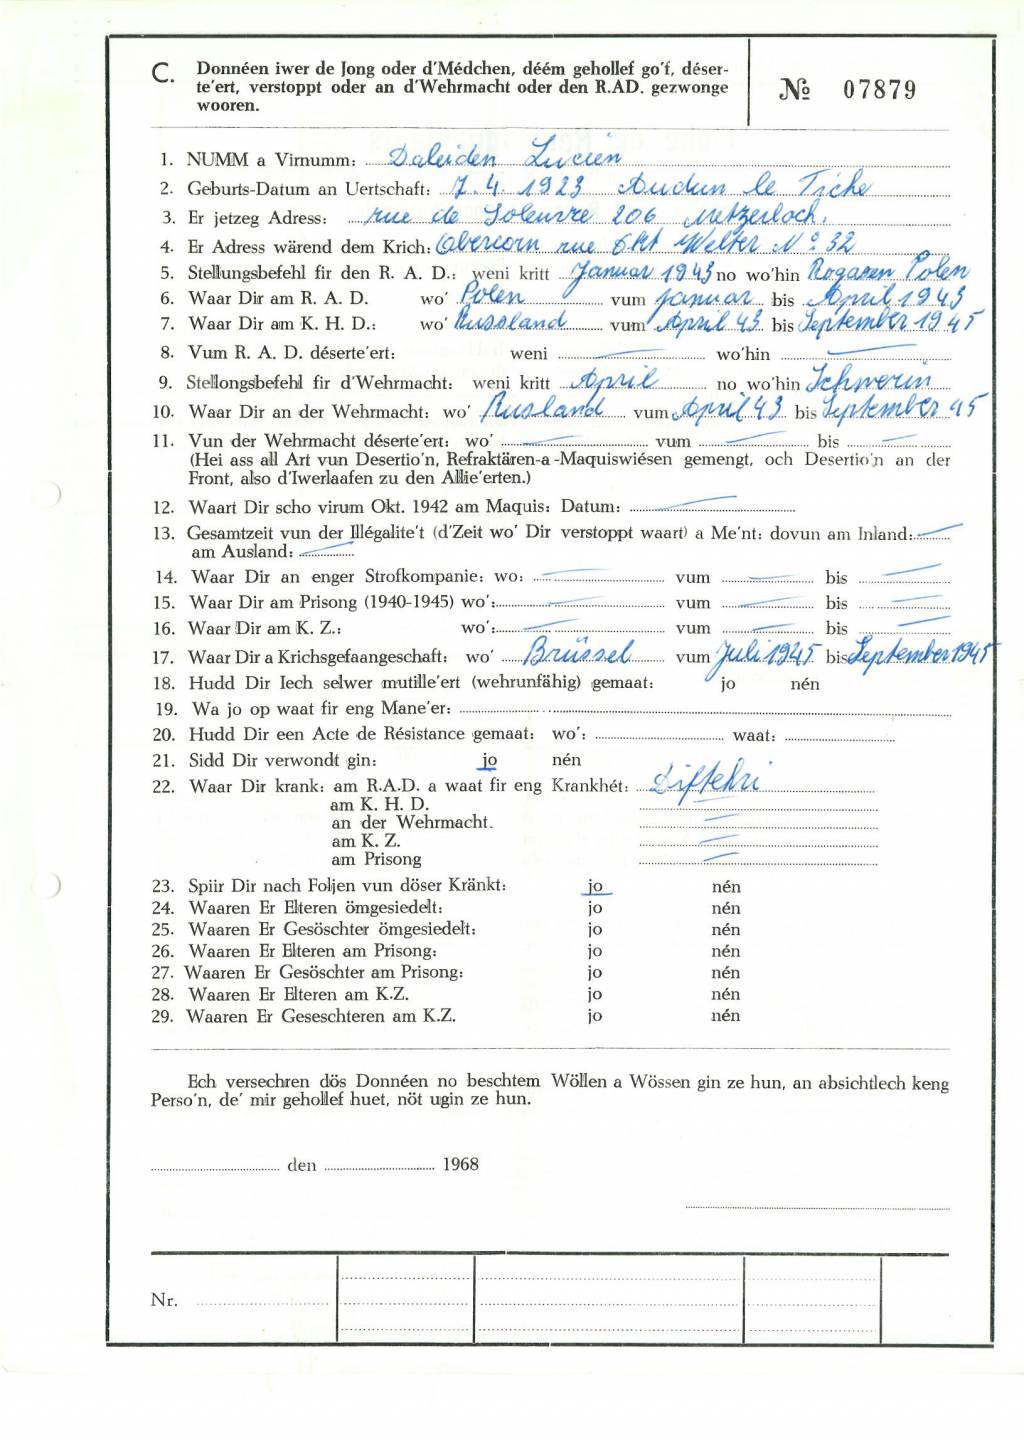 C. Donnéen iwer de Jong oder d'Médchen, déém gehollef go'f, déser-
te'ert, verstoppt oder an d'Wehrmacht oder den R.AD. gezwonge
wooren.
№ 07879
1. NUMM a Virnumm: Daleiden Lucien
2. Geburts-Datum an Uertschaft: 7.4.1923 Audun le Tiche
3. Er jetzeg Adress: rue de Soleuvre 206 Metzerlach.
4. Er Adress wärend dem Krich: Obercorn rue Welter N° 32
5. Stellungsbefehl fir den R. A. D.: weni kritt Januar 1943 no wo'hin Rogasen Polen
6. Waar Dir am R. A. D. wo' Polen vum Januar bis April 1943
7. Waar Dir am K. H. D.: wo' Russland vum April 43 bis September 1945
8. Vum R. A. D. déserte'ert: weni — wo'hin —
9. Stellongsbefehl fir d'Wehrmacht: weni kritt April no wo'hin Schwerin
10. Waar Dir an der Wehrmacht: wo' Rusland vum April 43 bis September 45
11. Vun der Wehrmacht déserte'ert: wo' — vum — bis —
(Hei ass all Art vun Desertio'n, Refraktären-a -Maquiswiésen gemengt, och Desertio'n an der
Front, also d'Iwerlaafen zu den Allie'erten.)
12. Waart Dir scho virum Okt. 1942 am Maquis: Datum: —
13. Gesamtzeit vun der Illégalite't (d'Zeit wo' Dir verstoppt waart) a Me'nt: dovun am Inland: —
am Ausland: —
14. Waar Dir an enger Strofkompanie: wo: — vum — bis —
15. Waar Dir am Prisong (1940-1945) wo': — vum — bis —
16. Waar Dir am K. Z.: wo': — vum — bis —
17. Waar Dir a Krichsgefaangeschaft: wo' Brüssel vum Juli 1945 bis September 1945
18. Hudd Dir Iech selwer mutille'ert (wehrunfähig) gemaat: jo nén
19. Wa jo op waat fir eng Mane'er:
20. Hudd Dir een Acte de Résistance gemaat: wo': waat:
21. Sidd Dir verwondt gin: jo nén
22. Waar Dir krank: am R.A.D. a waat fir eng Krankhét: Diftehri
am K. H. D. —
an der Wehrmacht. —
am K. Z. —
am Prisong —
23. Spiir Dir nach Foljen vun döser Kränkt: jo nén
24. Waaren Er Elteren ömgesiedelt: jo nén
25. Waaren Er Gesöschter ömgesiedelt: jo nén
26. Waaren Er Elteren am Prisong: jo nén
27. Waaren Er Gesöschter am Prisong: jo nén
28. Waaren Er Elteren am K.Z. jo nén
29. Waaren Er Geseschteren am K.Z. jo nén
Ech versechren dös Donnéen no beschtem Wöllen a Wössen gin ze hun, an absichtlech keng
Perso'n, de' mir gehollef huet, nöt ugin ze hun.
den 1968
Nr.